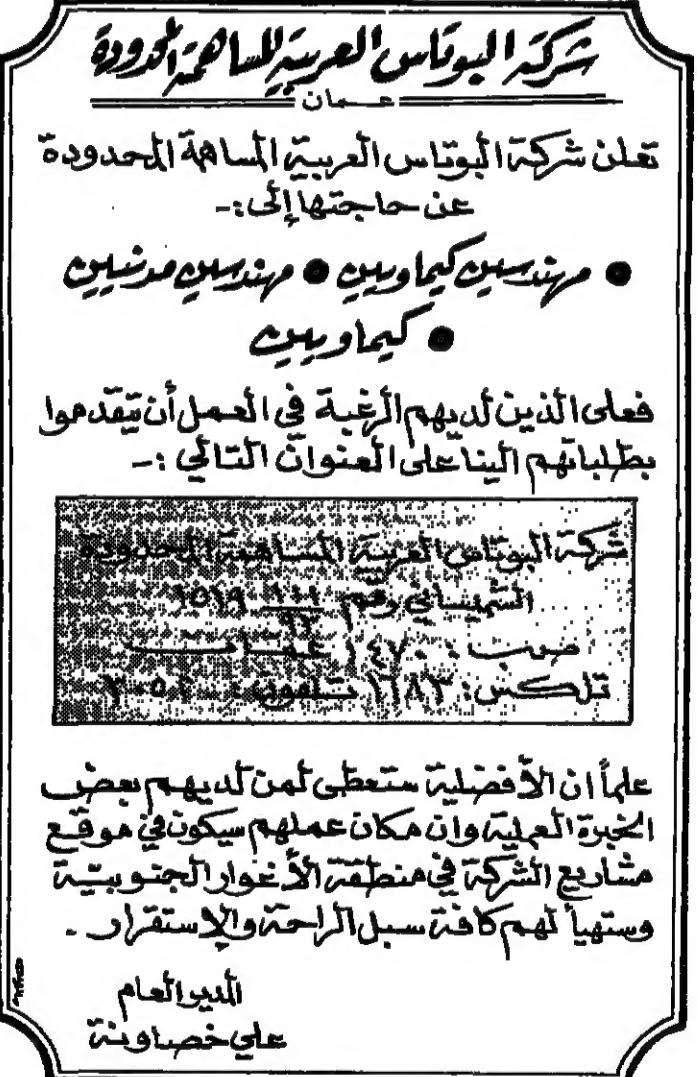 شركة البوتاس العربية المساهمة المحدودة
عمان
تعلن شركة البوتاس العربية المساهمة المحدودة
عن حاجتها إلى :-
• مهندسين كيماويين • مهندسين مدنيين
• كيماويين
فعلى الذين لديهم الرغبة في العمل أن يتقدموا
بطلباتهم الينا على العنوان التالي :-
شركة البوتاس العربية المساهمة المحدودة
الشميساني رقم
ص.ب : ١٤٧٠ عمان
تلكس: ١٦٨٣ تلفون:
علماً ان الأفضلية ستعطى لمن لديهم بعض
الخبرة العملية وان مكان عملهم سيكون في موقع
مشاريع الشركة في منطقة الأغوار الجنوبية
وستهيأ لهم كافة سبل الراحة والإستقرار .
المدير العام
علي خصاونة